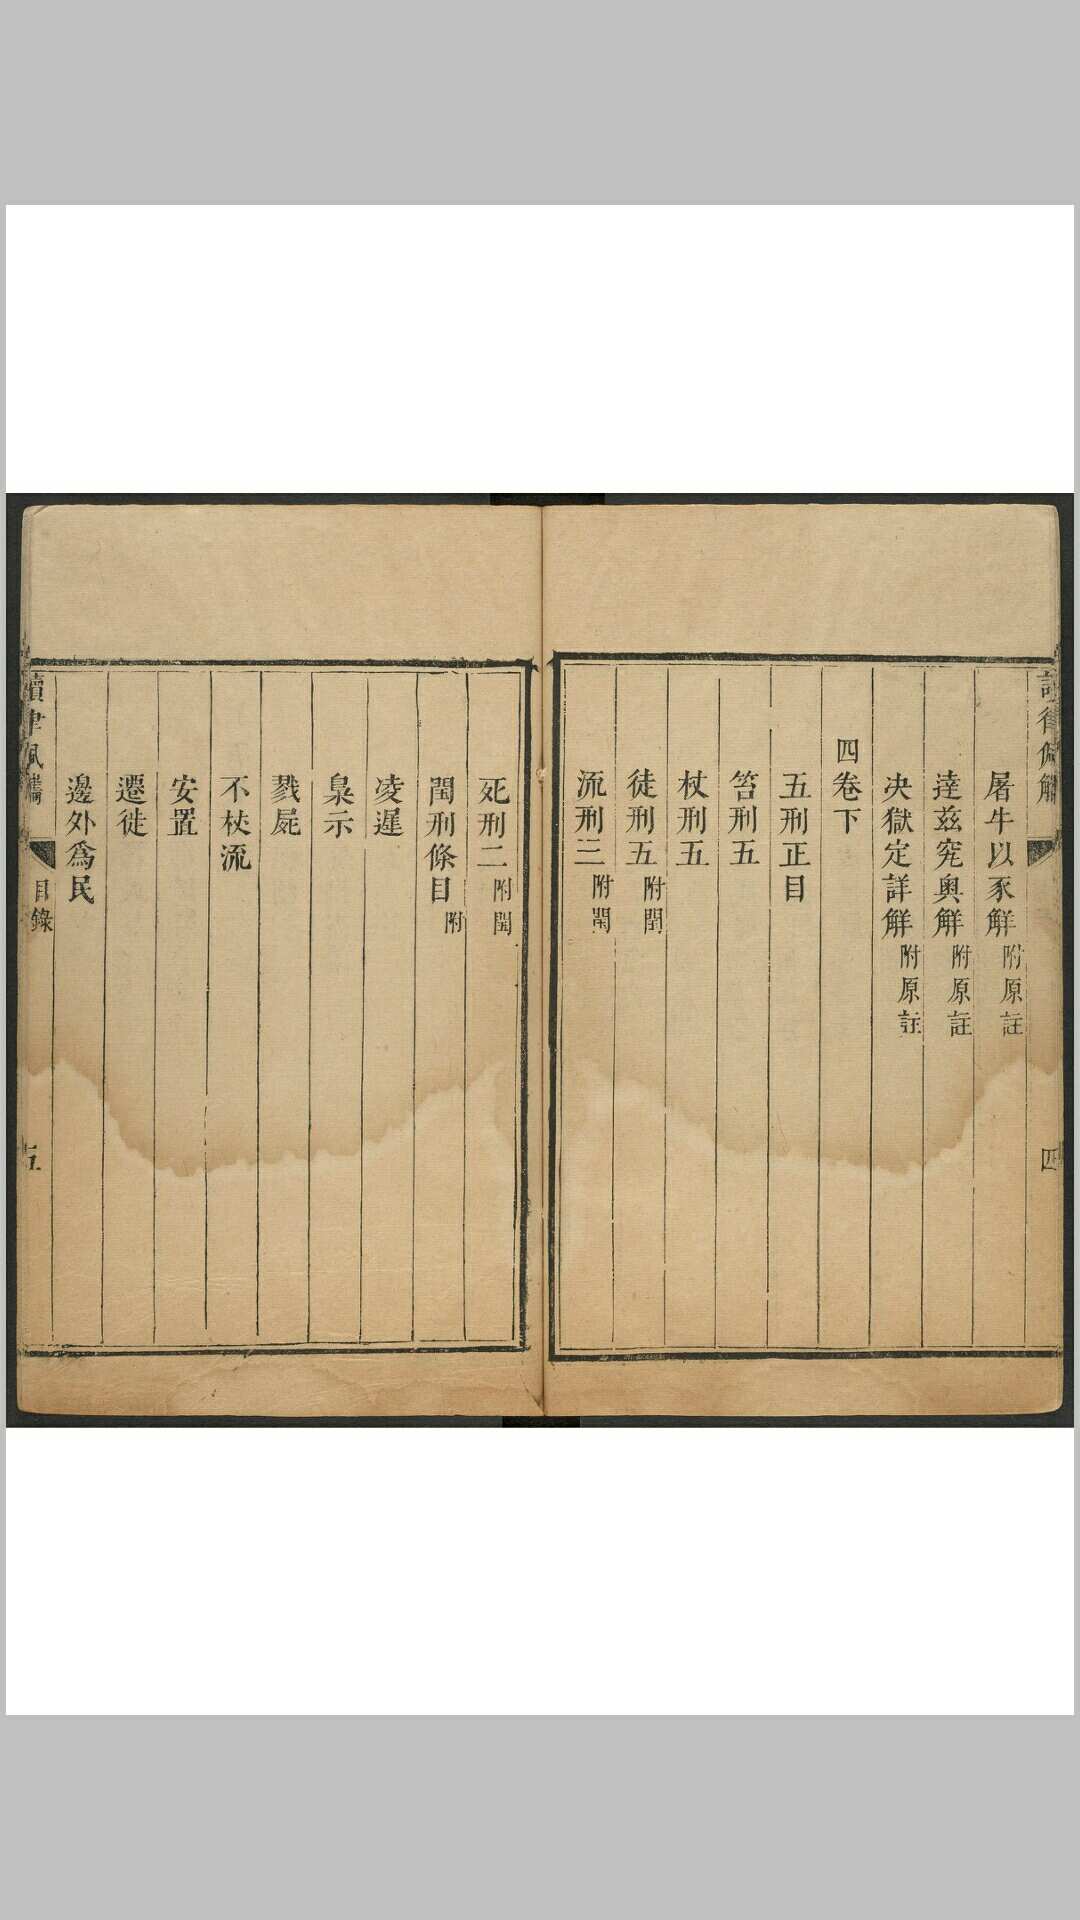 讀律佩觿
四
屠牛以豕觧附原註
達茲究奧觧附原註
决獄定詳觧附原註
四卷下
五刑正目
笞刑五
杖刑五
徒刑五附閏
流刑三附閏
死刑二附閏
閏刑條目附
凌遲
梟示
戮屍
不杖流
安置
遷徙
邊外爲民
讀律佩觿
目錄
五